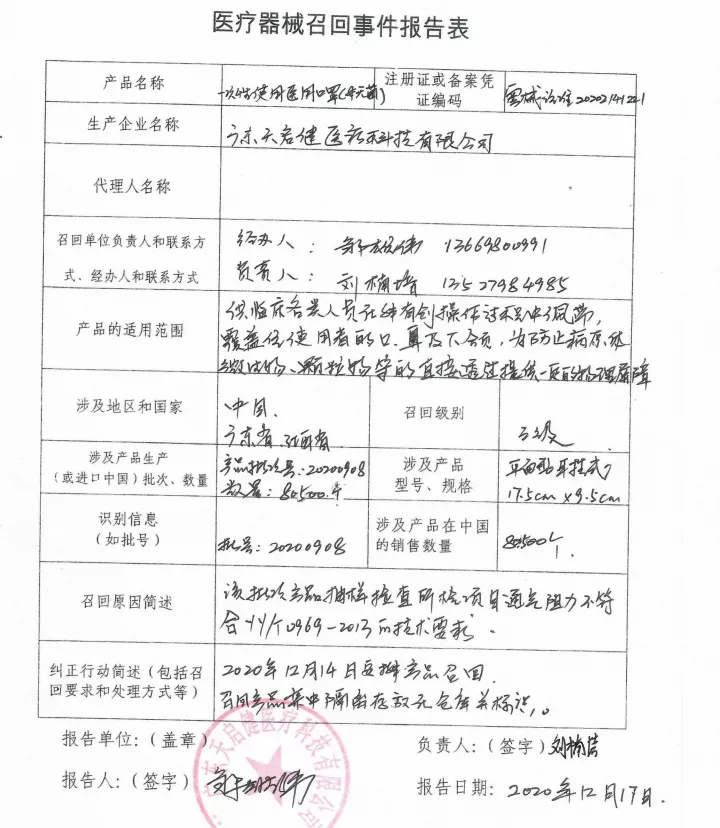 医疗器械召回事件报告表
产品名称 一次性使用医用口罩(非灭菌) 注册证或备案凭证编码 粤械注准20202141221
生产企业名称 广东天启健医疗科技有限公司
代理人名称
召回单位负责人和联系方式、经办人和联系方式
经办人: 13669800991
负责人: 刘楠 13527984985
产品的适用范围
供临床各类人员在非有创操作过程中佩带,
覆盖住使用者的口、鼻及下颌,为防止病原体
微生物、颗粒物等的直接透过提供一定的物理屏障
涉及地区和国家 中国. 召回级别 三级
广东省 江西省
涉及产品生产(或进口中国)批次、数量
产品批次号:20200908
数量:80500个
涉及产品型号、规格
平面型耳挂式
17.5cm x9.5cm
识别信息(如批号) 批号:20200908
涉及产品在中国的销售数量 80500个.
召回原因简述
该批次产品抽样检查所检项目通气阻力不符
合YY/T0969-2013的技术要求.
纠正行动简述(包括召回要求和处理方式等)
2020年12月14日安排产品召回.
召回产品集中隔离存放于仓库并标识。
报告单位:(盖章) 负责人:(签字)刘楠
报告人:(签字) 报告日期: 2020年12月17日.
广东天启健医疗科技有限公司